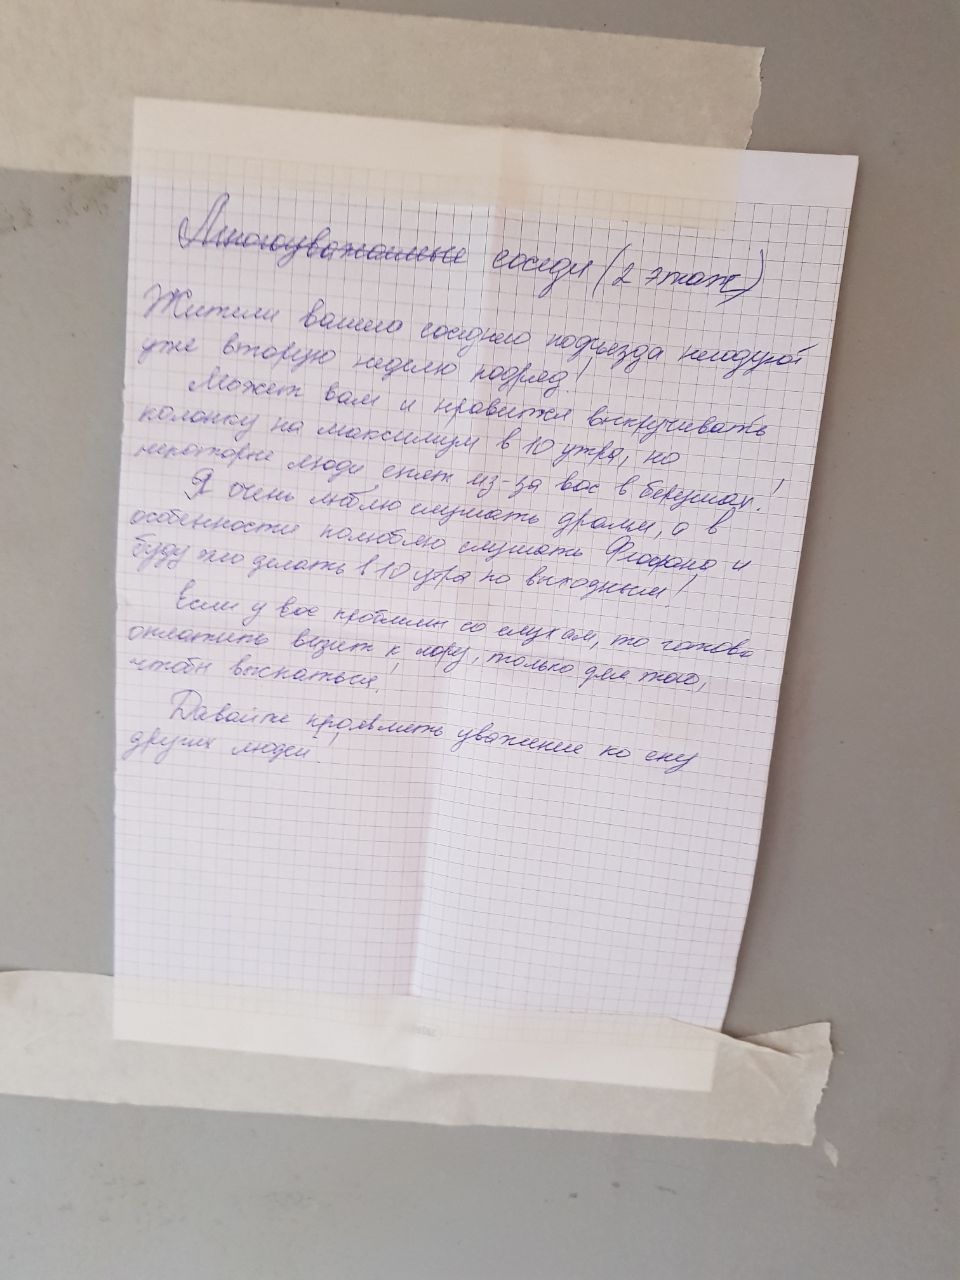 Многоуважаемые соседи (2 этаж)
Жители вашего соседнего подъезда негодуют
уже вторую неделю подряд!
Может вам и нравится выкручивать
колонку на максимум в 10 утра, но
некоторые люди спят из-за вас в берушах!
Я очень люблю слушать драмы, а в
особенности полюблю слушать и
буду это делать в 10 утра по выходным!
Если у вас проблемы со слухом, то готова
оплатить визит к лору, только для того,
чтобы выспаться!
Давайте проявлять уважение ко сну
других людей!